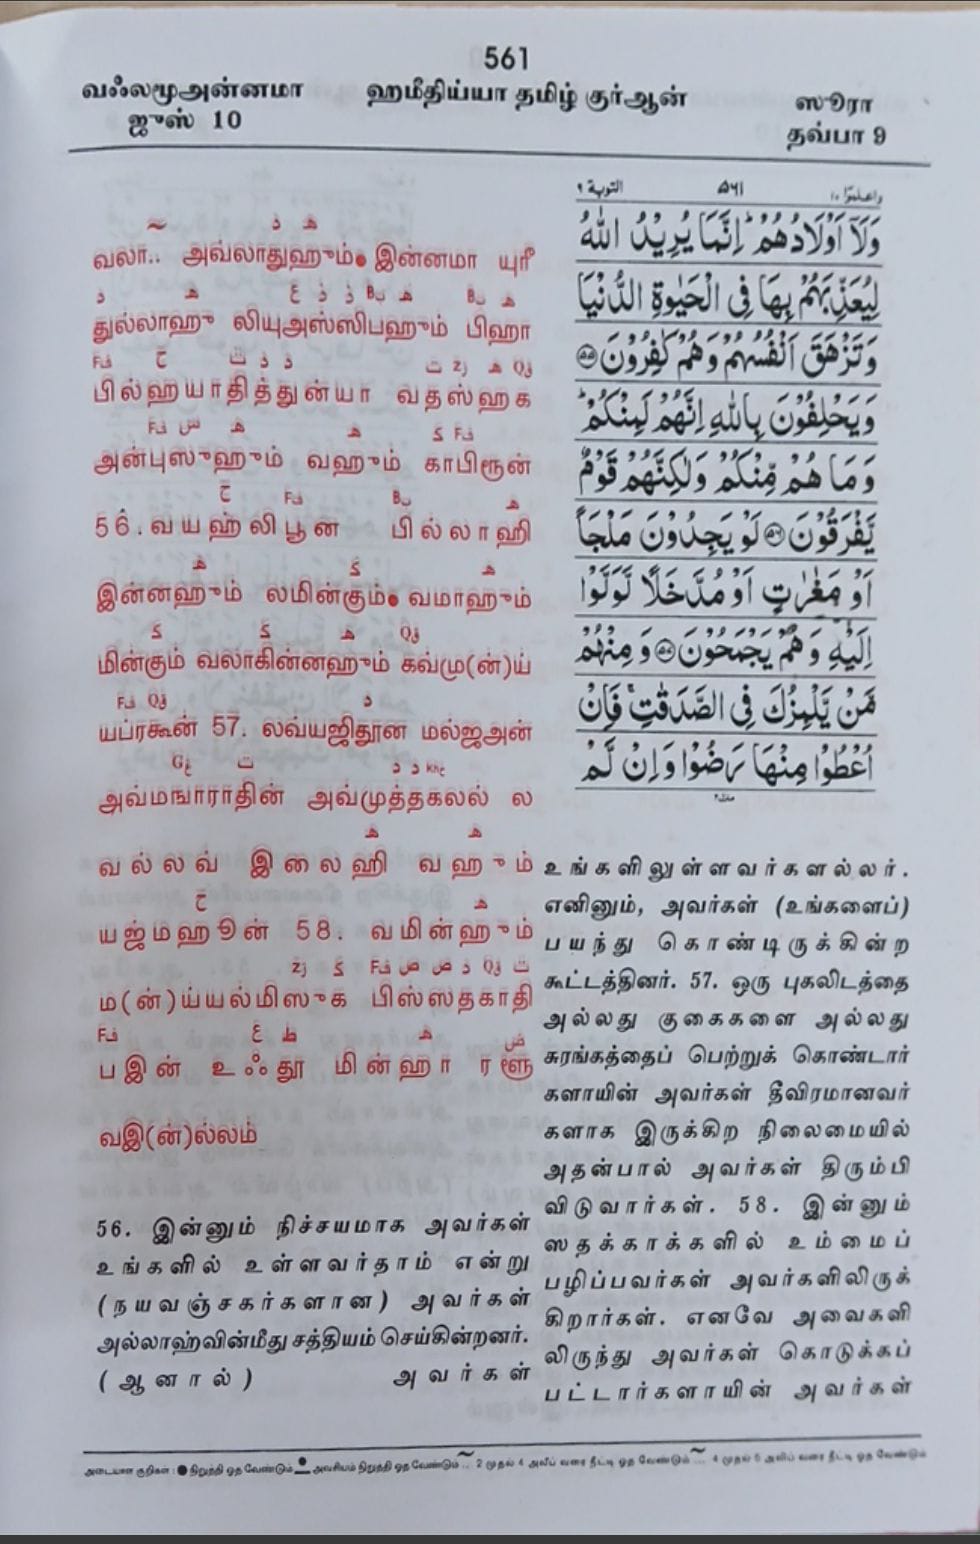 561
வஃலமூஅன்னமா ஹமீதிய்யா தமிழ் குர்ஆன் ஸூரா
ஜுஸ் 10 தவ்பா 9
واعلموا ١٠ ٥٦١ التوبة ٩
وَلَآ اَوْلَادُهُمْ ؕ اِنَّمَا يُرِيْدُ اللّٰهُ
لِيُعَذِّبَهُمْ بِهَا فِى الْحَيٰوةِ الدُّنْيَا
وَتَزْهَقَ اَنْفُسُهُمْ وَهُمْ كٰفِرُوْنَ ۝٥٥
وَيَحْلِفُوْنَ بِاللّٰهِ اِنَّهُمْ لَمِنْكُمْ ؕ
وَمَا هُمْ مِّنْكُمْ وَلٰكِنَّهُمْ قَوْمٌ
يَّفْرَقُوْنَ ۝٥٦ لَوْ يَجِدُوْنَ مَلْجَاً
اَوْ مَغٰرٰتٍ اَوْ مُدَّخَلًا لَّوَلَّوْا
اِلَيْهِ وَهُمْ يَجْمَحُوْنَ ۝٥٧ وَمِنْهُمْ
مَّنْ يَّلْمِزُكَ فِى الصَّدَقٰتِ ۚ فَاِنْ
اُعْطُوْا مِنْهَا رَضُوْا وَاِنْ لَّمْ
வலா.. அவ்லாதுஹும்● இன்னமா யுரீ
துல்லாஹு லியுஅஸ்ஸிபஹும் பிஹா
பில்ஹயாதித்துன்யா வதஸ்ஹக
அன்புஸுஹும் வஹும் காபிரூன்
56. வயஹ்லிபூன பில்லாஹி
இன்னஹும் லமின்கும்● வமாஹும்
மின்கும் வலாகின்னஹும் கவ்மு(ன்)ய்
யப்ரகூன் 57. லவ்யஜிதூன மல்ஜஅன்
அவ்மஙாராதின் அவ்முத்தகலல் ல
வல்லவ் இலைஹி வஹும்
யஜ்மஹூன் 58. வமின்ஹும்
ம(ன்)ய்யல்மிஸுக பிஸ்ஸதகாதி
பஇன் உஃதூ மின்ஹா ரளூ
வஇ(ன்)ல்லம்
56. இன்னும் நிச்சயமாக அவர்கள்
உங்களில் உள்ளவர்தாம் என்று
(நயவஞ்சகர்களான) அவர்கள்
அல்லாஹ்வின்மீது சத்தியம் செய்கின்றனர்.
(ஆனால்) அவர்கள்
உங்களிலுள்ளவர்களல்லர்.
எனினும், அவர்கள் (உங்களைப்)
பயந்து கொண்டிருக்கின்ற
கூட்டத்தினர். 57. ஒரு புகலிடத்தை
அல்லது குகைகளை அல்லது
சுரங்கத்தைப் பெற்றுக் கொண்டார்
களாயின் அவர்கள் தீவிரமானவர்
களாக இருக்கிற நிலைமையில்
அதன்பால் அவர்கள் திரும்பி
விடுவார்கள். 58. இன்னும்
ஸதக்காக்களில் உம்மைப்
பழிப்பவர்கள் அவர்களிலிருக்
கிறார்கள். எனவே அவைகளி
லிருந்து அவர்கள் கொடுக்கப்
பட்டார்களாயின் அவர்கள்
அடையாள குறிகள் : ● நிறுத்தி ஓத வேண்டும் அவசியம் நிறுத்தி ஓத வேண்டும் ~.. 2 முதல் 4 அலிப் வரை நீட்டி ஓத வேண்டும் ~... 4 முதல் 5 அலிப் வரை நீட்டி ஓத வேண்டும்